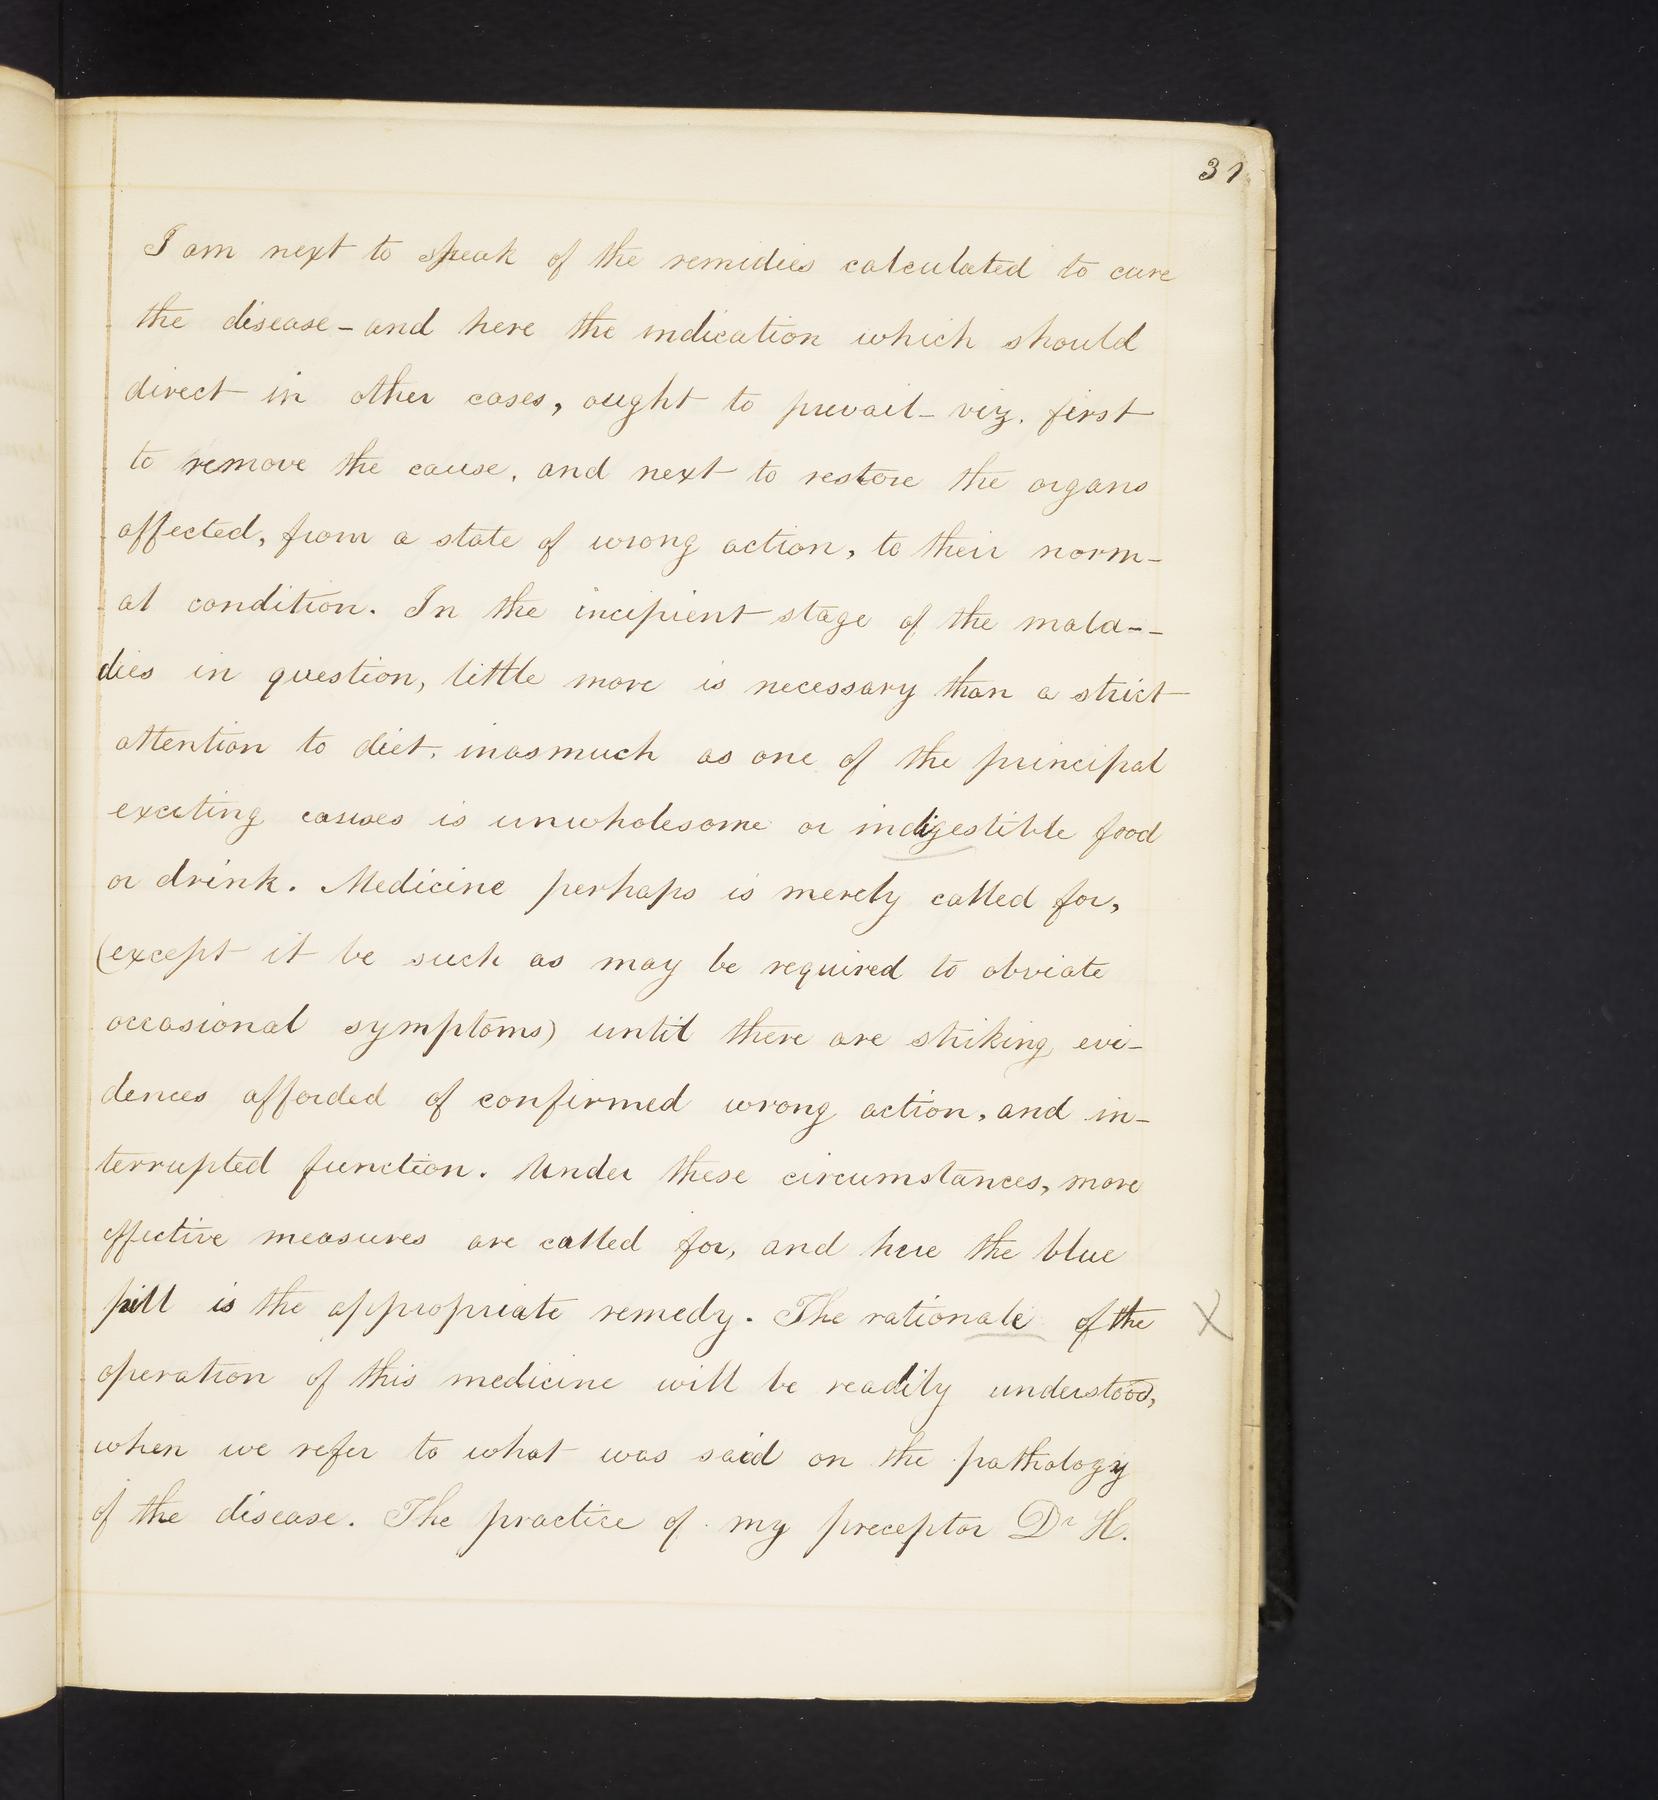 31
I am next to speak of the remidies calculated to cure
the disease - and here the indication which should
direct in other cases, ought to prevail - viz. first
to remove the cause, and next to restore the organs
affected, from a state of wrong action, to their norm-
al condition. In the incipient stage of the mala--
dies in question, little more is necessary than a strict
attention to diet, inasmuch as one of the principal
exciting causes is unwholesome or indigestible food
or drink. Medicine perhaps is merely called for,
(except it be such as may be required to obviate
occasional symptoms) until there are striking evi-
dences afforded of confirmed wrong action, and in-
terrupted function. Under these circumstances, more
effective measures are called for, and here the blue
pill is the appropriate remedy. The rationale of the X
operation of this medicine will be readily understood,
when we refer to what was said on the pathology
of the disease. The practice of my preceptor Dr H.